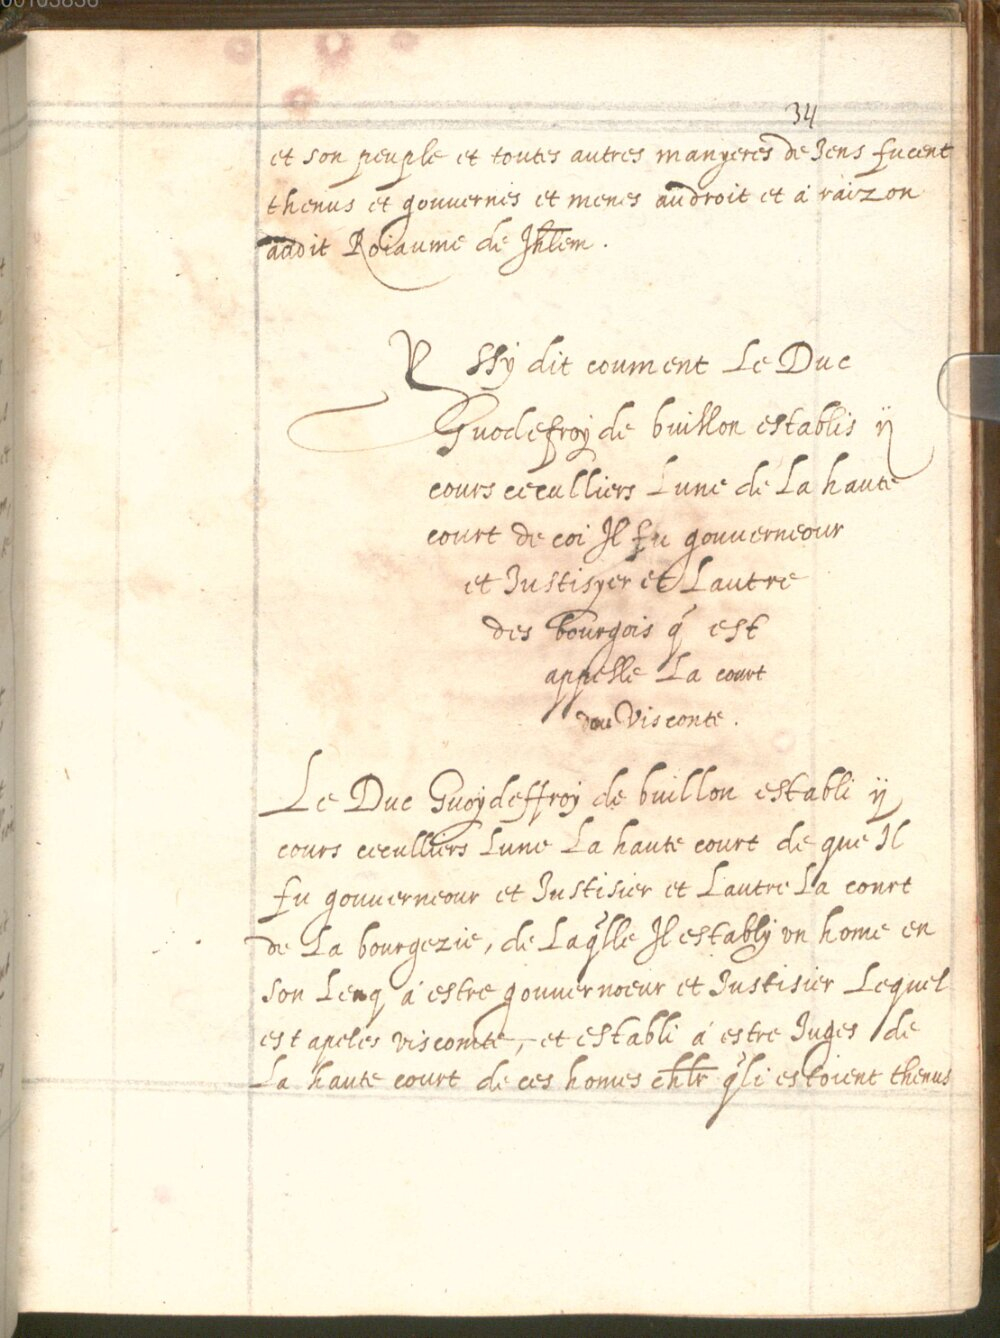 00103836
34
et son peuple et toutes autres manyeres de Jens fucent
thenus et gouuernes et menes audroit et a raizon
audit Roiaume de Jhlem .
Yssy dit coument Le Duc
Guodefroy de buillon establis ij
cours ceculliers Lune de La haute
court de coi Jl fu gouuerneour
et Justisyer et Lautre
des bourgois q̃ est
appelle La court
dou Visconte .
Le Duc Guoydeffroy de buillon establi ij
cours ceculliers Lune La haute court de que Jl
fu gouuerneour et Justisier et Lautre La court
de La bourgezie, de Laq̃lle Jl establÿ vn home en
son Leuq á estre gouuernoeur et Justisier Lequel
est apeles viscomte, et establi á estre Juges de
La haute court de ces homes chlr q̃li estoient thenus